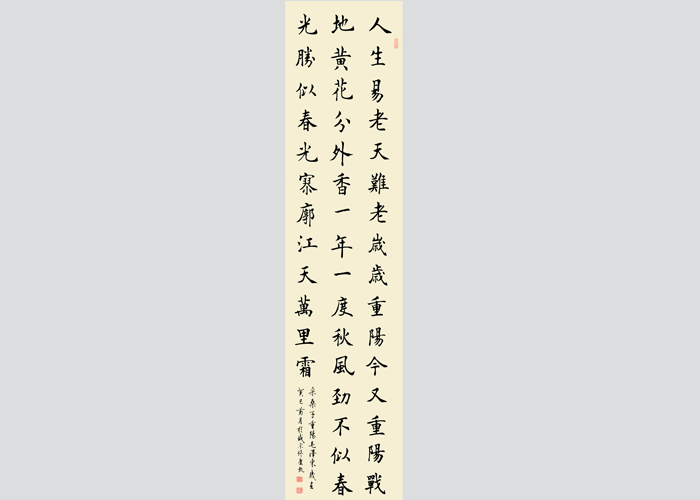 人生易老天難老歲歲重陽今又重陽戰
地黃花分外香一年一度秋風勁不似春
光勝似春光寥廓江天萬里霜
采桑子重陽毛澤東
癸巳